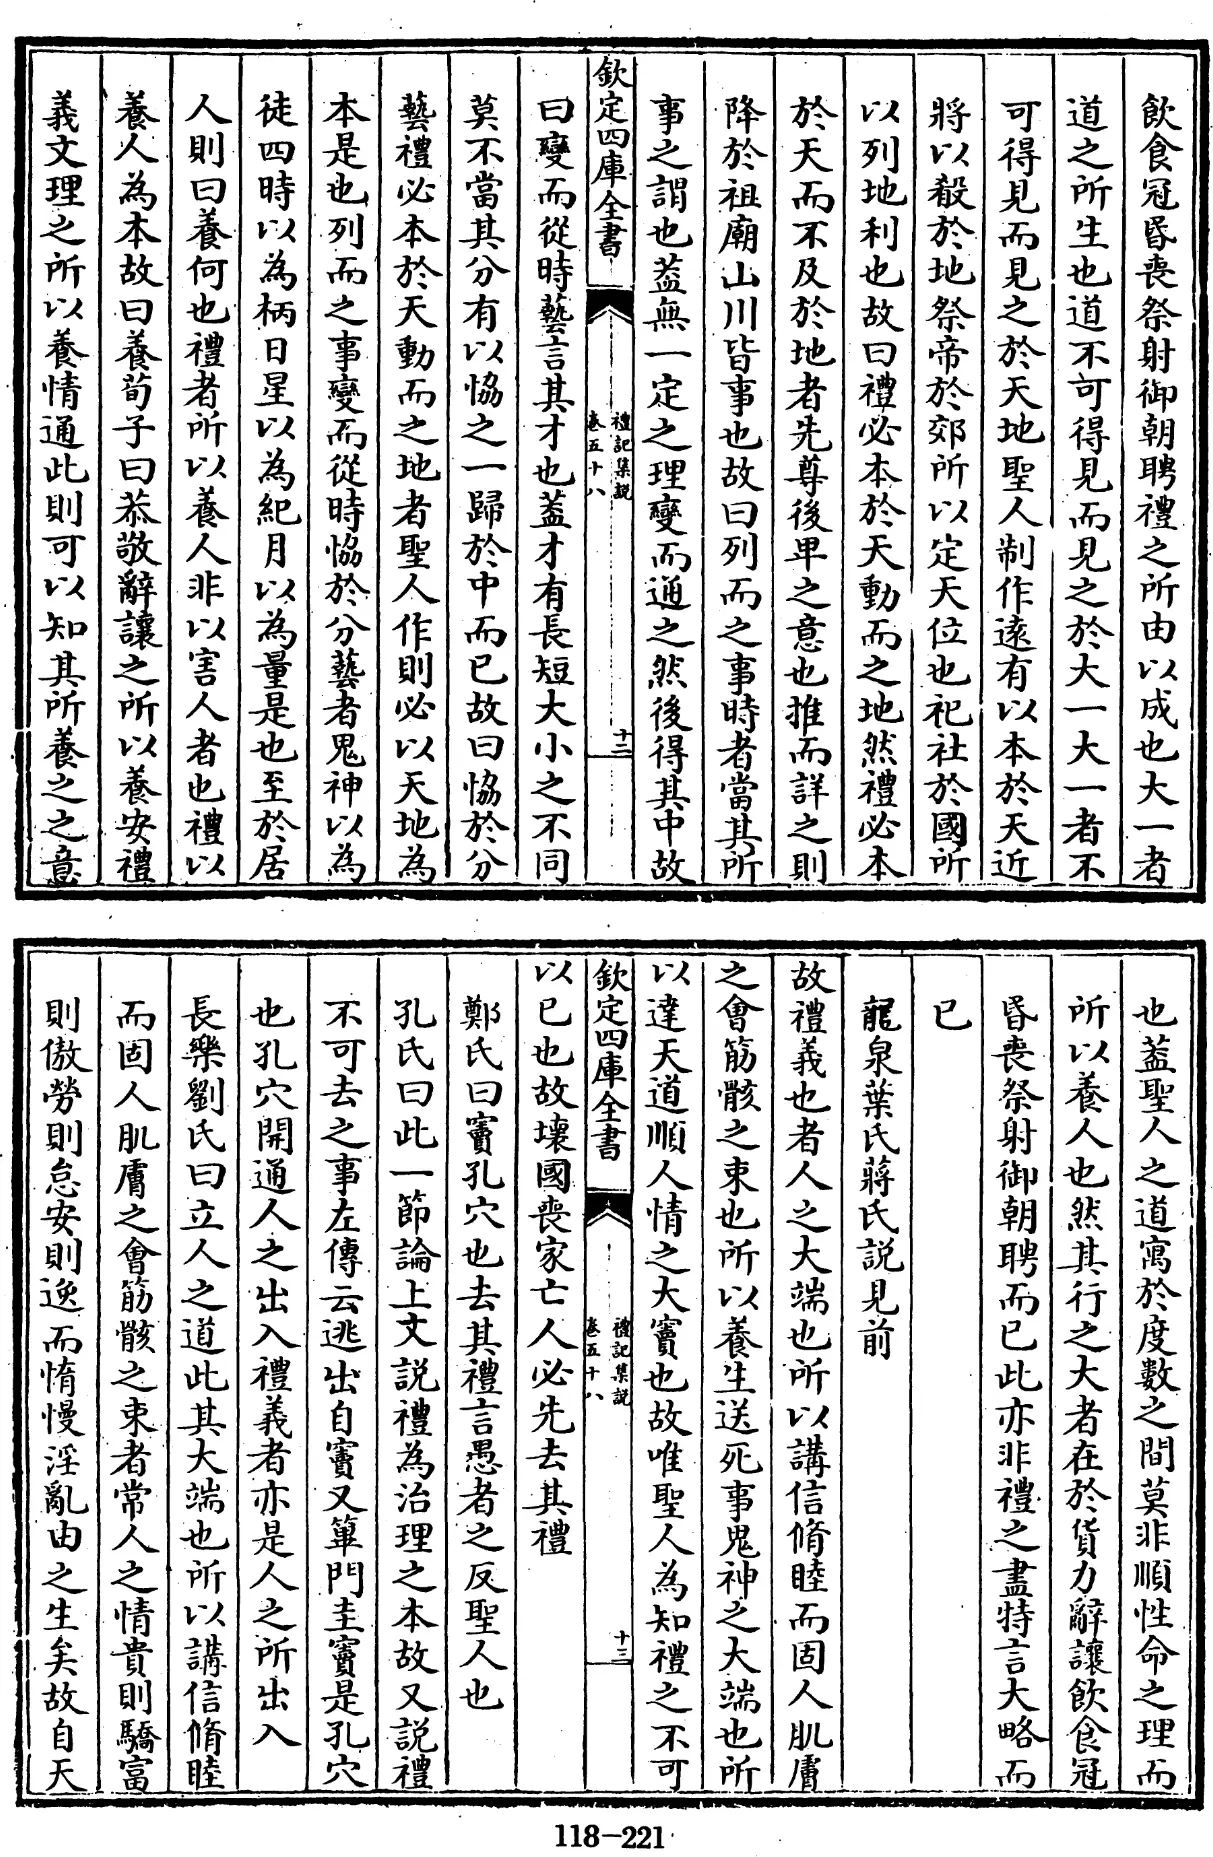 飲食冠昏喪祭射御朝聘禮之所由以成也大一者
道之所生也道不可得見而見之於大一大一者不
可得見而見之於天地聖人制作逺有以本於天近
將以殽於地祭帝於郊所以定天位也祀社於國所
以列地利也故曰禮必本於天動而之地然禮必本
於天而不及於地者先尊後卑之意也推而詳之則
降於祖廟山川皆事也故曰列而之事時者當其所
事之謂也葢無一定之理變而通之然後得其中故
欽定四庫全書
禮記集說
卷五十八
十二
曰變而從時藝言其才也葢才有長短大小之不同
莫不當其分有以協之一歸於中而已故曰協於分
藝禮必本於天動而之地者聖人作則必以天地為
本是也列而之事變而從時協於分藝者鬼神以為
徒四時以為柄日星以為紀月以為量是也至於居
人則曰養何也禮者所以養人非以害人者也禮以
養人為本故曰養荀子曰恭敬辭讓之所以養安禮
義文理之所以養情通此則可以知其所養之之意
也葢聖人之道寓於度數之間莫非順性命之理而
所以養人也然其行之大者在於貨力辭讓飲食冠
昏喪祭射御朝聘而已此亦非禮之盡特言大略而
已
龍泉葉氏蔣氏説見前
故禮義也者人之大端也所以講信脩睦而固人肌膚
之會筋骸之束也所以養生送死事鬼神之大端也所
以達天道順人情之大竇也故唯聖人為知禮之不可
欽定四庫全書
禮記集說
卷五十八
十三
以已也故壞國喪家亡人必先去其禮
鄭氏曰竇孔穴也去其禮言愚者之反聖人也
孔氏曰此一節論上文説禮為治理之本故又説禮
不可去之事左傳云逃出自竇又篳門圭竇是孔穴
也孔穴開通人之出入禮義者亦是人之所出入
長樂劉氏曰立人之道此其大端也所以講信脩睦
而固人肌膚之會筋骸之束者常人之情貴則驕富
則傲勞則怠安則逸而惰慢淫亂由之生矣故自天
118-221